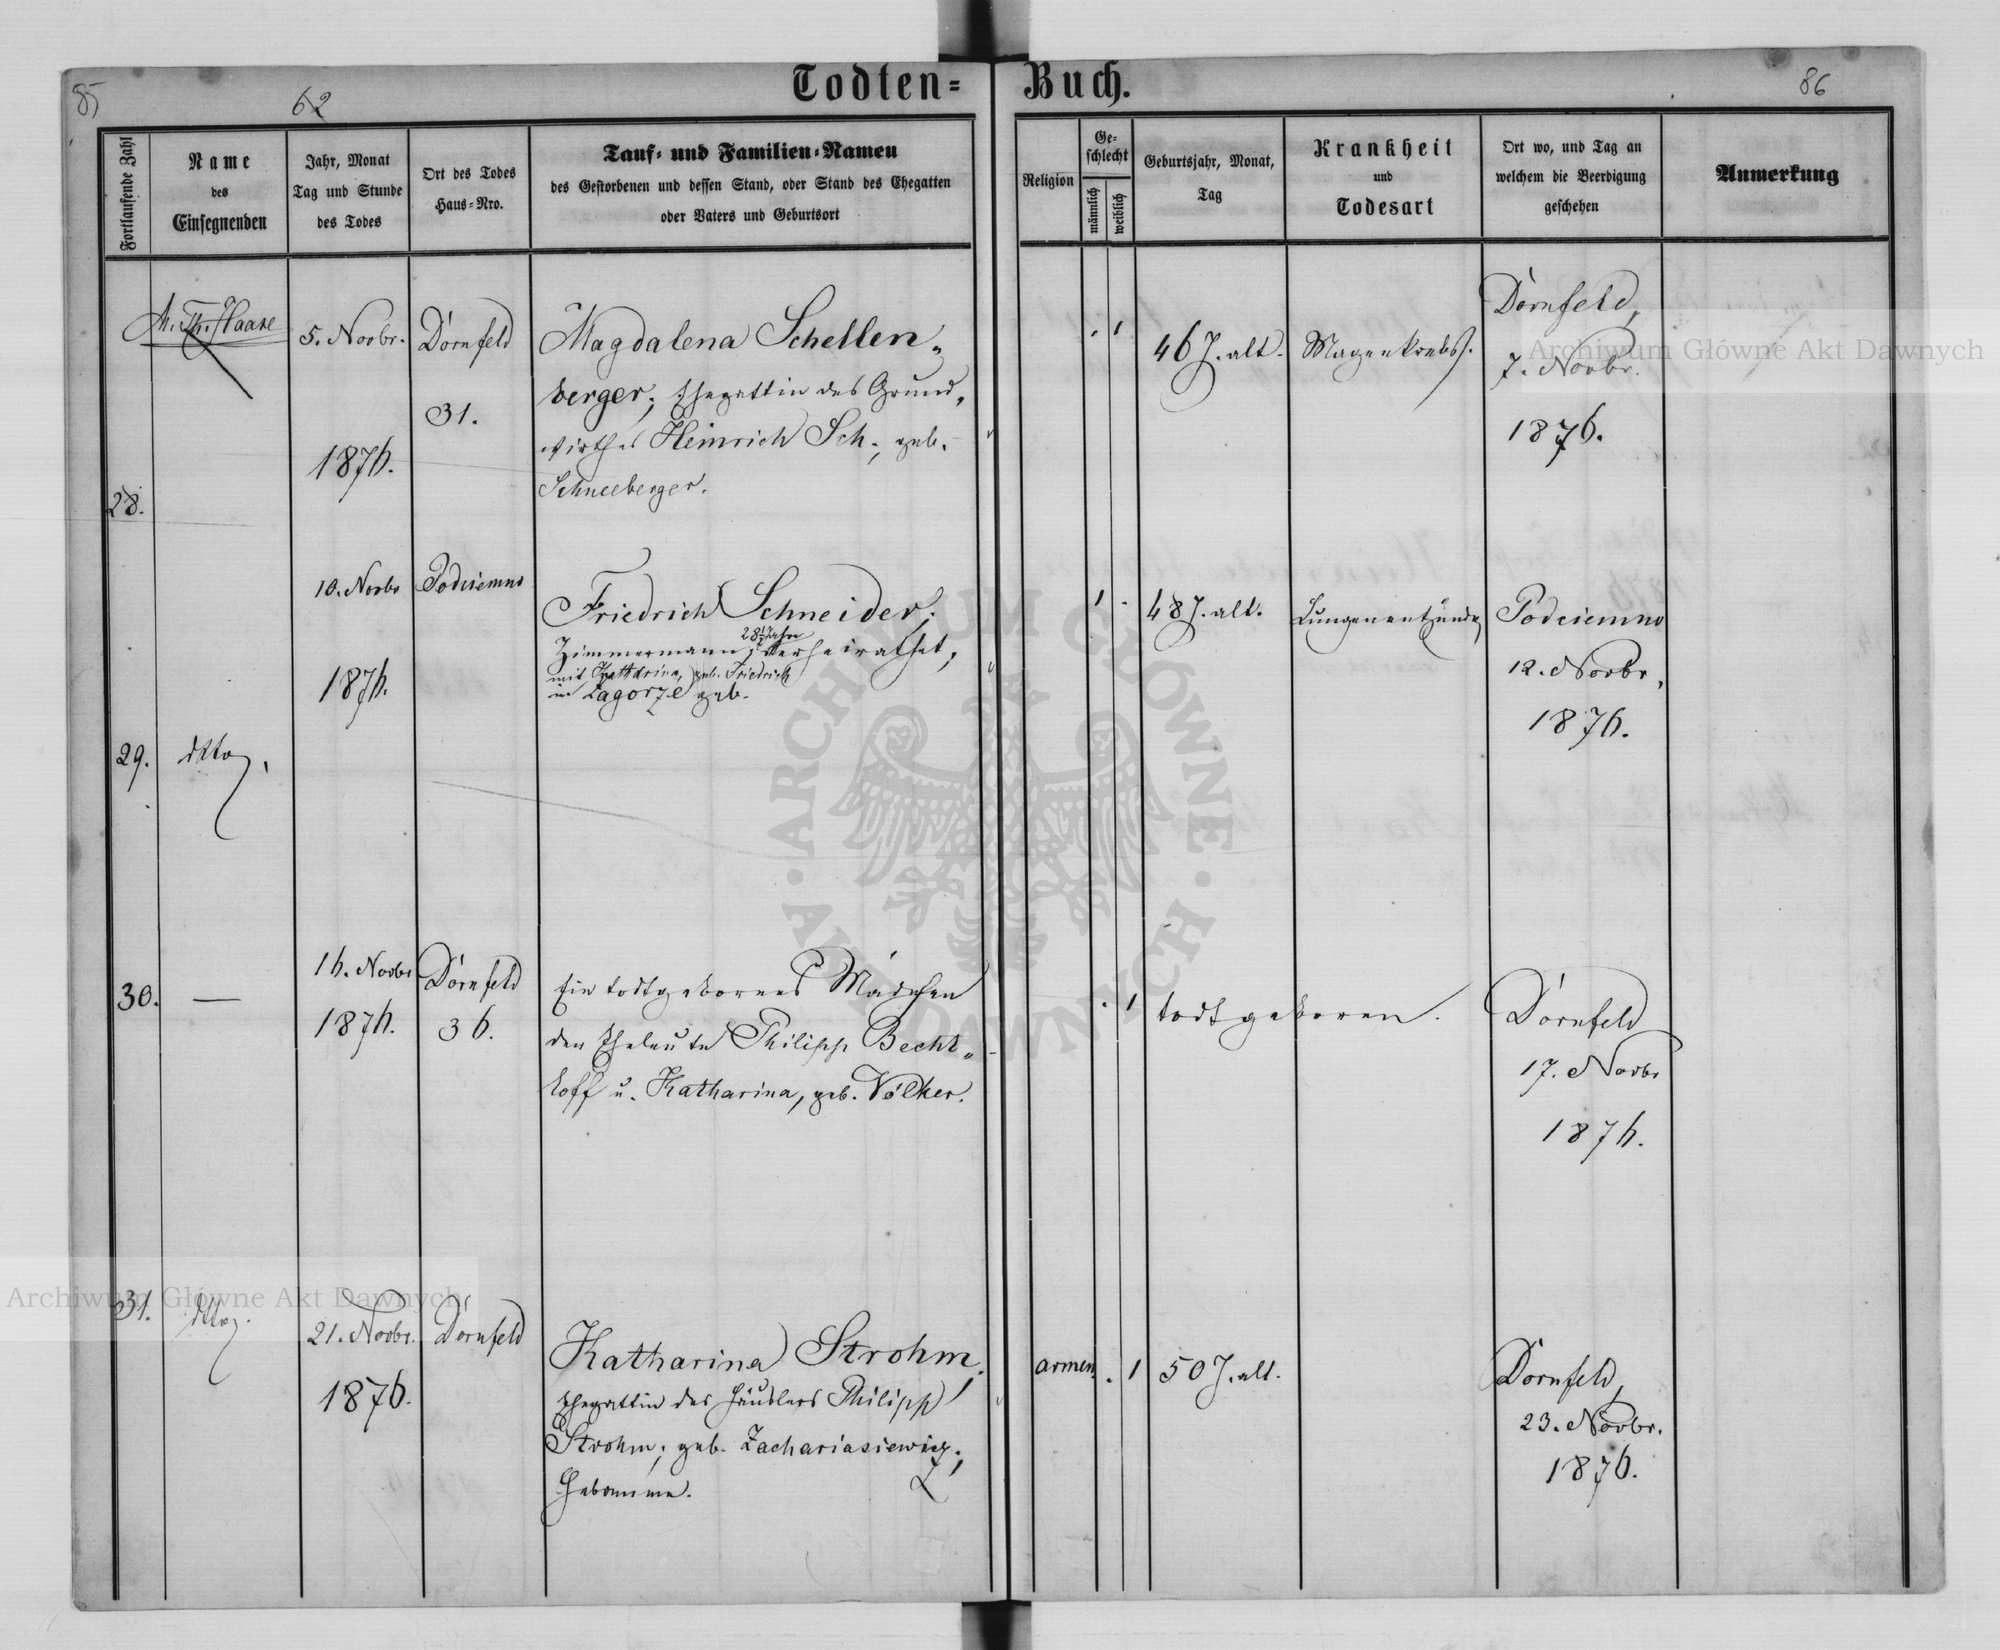 85
62
Todten-
Buch.
86
Fortlaufende Zahl
Name
des
Einsegnenden
Jahr, Monat
Tag und Stunde
des Todes
Ort des Todes
Haus-Nro.
Tauf- und Familien-Namen
des Gestorbenen und dessen Stand, oder Stand des Ehegatten
oder Vaters und Geburtsort
Religion
Ge-
schlecht
männlich
weiblich
Geburtsjahr, Monat,
Tag
Krankheit
und
Todesart
Ort wo, und Tag an
welchem die Beerdigung
geschehen
Anmerkung
28.
M. Th. Haase
5. Novbr.
1876.
Dornfeld
31.
Magdalena Schellen-
berger; Ehegattin des Grund-
wirthes Heinrich Sch., geb.
Schneeberger.
. 1
46 J. alt.
Magenkrebs.
Dornfeld,
7. Novbr.
1876.
29.
dtto,
10. Novbr
1876.
Podciemno
Friedrich Schneider;
28½ Jahre
Zimmermann, verheirathet,
mit Katharina, geb. Friedrich
in Zagorze geb.
1 .
48 J. alt.
Lungenentzündg
Podciemno
12. Novbr.
1876.
30.
—
16. Novbr
1876.
Dornfeld
36.
Ein todtgebornes Mädchen
der Eheleute Philipp Becht-
loff u. Katharina, geb. Völker.
. 1
todtgeboren.
Dornfeld
17. Novbr
1876.
31.
dtto.
21. Novbr.
1876.
Dornfeld
Katharina Strohm,
Ehegattin des Häuslers Philipp
Strohm; geb. Zachariasiewicz;
Hebamme.
armen.
. 1
50 J. alt.
Dornfeld,
23. Novbr.
1876.
Archiwum Główne Akt Dawnych
Archiwum Główne Akt Dawnych
ARCHIWUM GŁÓWNE AKT DAWNYCH